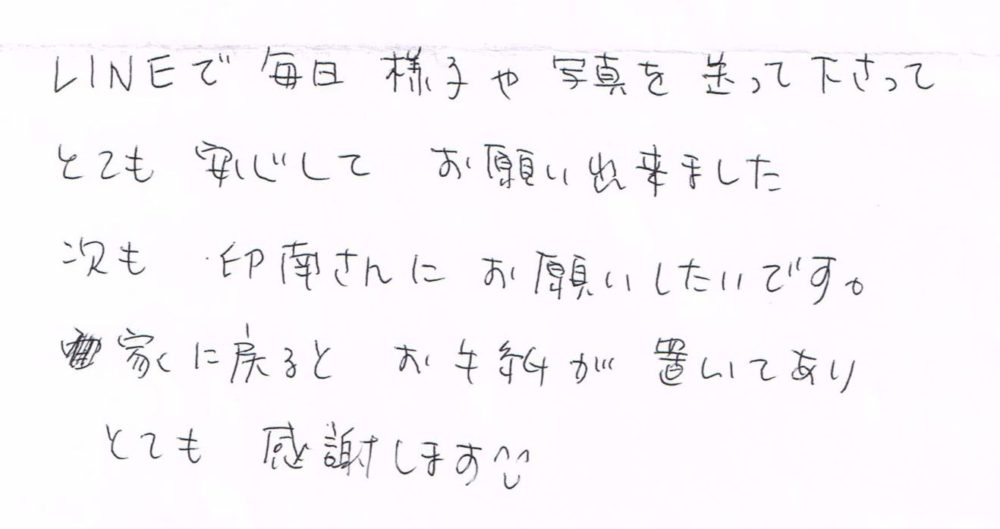 LINEで 毎日 様子や 写真を 送って下さって
とても 安心して お願い出来ました
次も 印南さんに お願いしたいです。
家に戻ると お手紙が 置いてあり
とても 感謝します^^